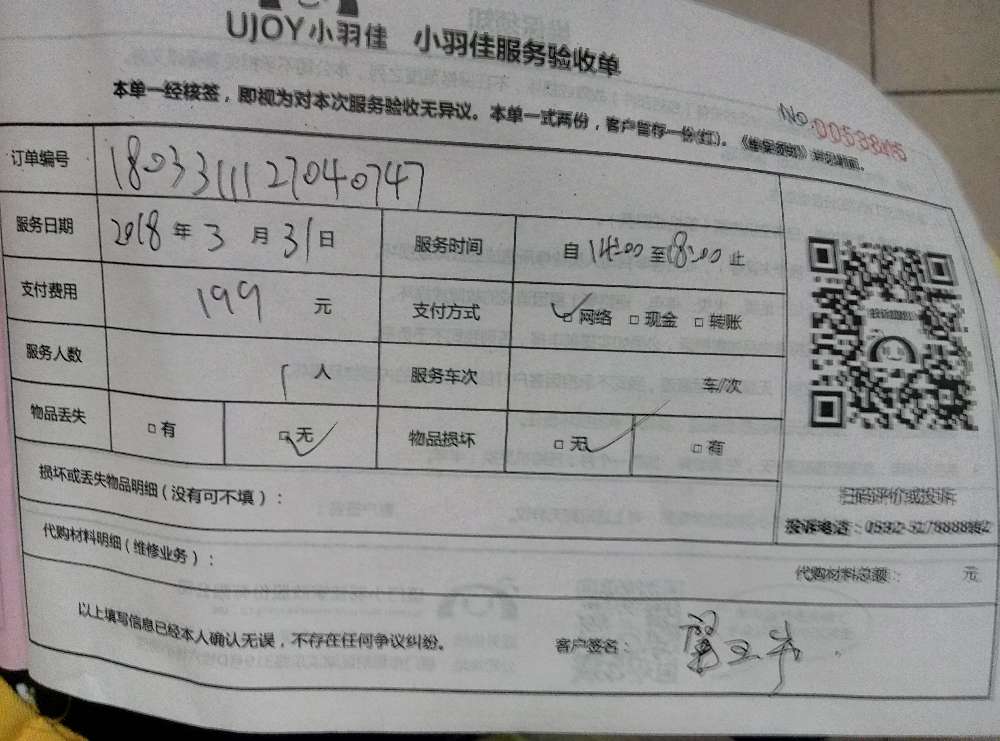 UJOY小羽佳 小羽佳服务验收单
本单一经核签，即视为对本次服务验收无异议。本单一式两份，客户留存一份(红)。《维保须知》详见背面。
No.0053845
订单编号 18033111127040747
服务日期 2018 年 3 月 31 日 服务时间 自 14:00 至 18:00 止
支付费用 199 元 支付方式 □网络 □现金 □转账
服务人数 1 人 服务车次 车/次
物品丢失 □有 □无 物品损坏 □无 □有
损坏或丢失物品明细（没有可不填）：
扫码评价或投诉
投诉电话：0532-
代购材料明细（维修业务）：
代购材料总额： 元
以上填写信息已经本人确认无误，不存在任何争议纠纷。 客户签名：